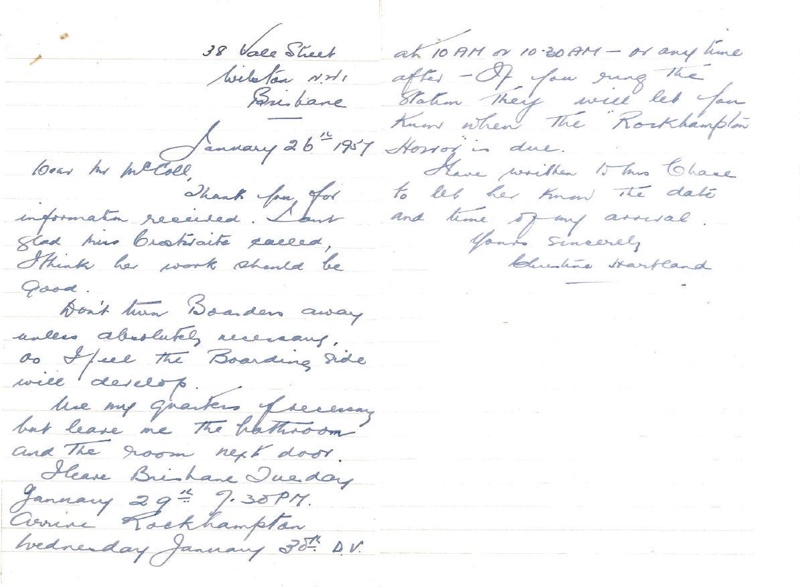 38 Vale Street
Wilston N.W.1
Brisbane
January 26th 1957
Dear Mr McColl,
Thank you for
information received. I am
glad Miss called,
I think her work should be
good.
Don't turn Boarders away
unless absolutely necessary,
as I feel the Boarding side
will develop.
Use my quarters if necessary
but leave me the bathroom
and the room next door.
I leave Brisbane Tuesday
January 29th 7.30 PM.
Arrive Rockhampton
Wednesday January 30th D.V.
at 10 AM or 10.30 AM – or any time
after – If you rung the
station they will let you
know when the "Rockhampton
Horror" is due.
Have written to Mrs Chase
to let her know the date
and time of my arrival.
Yours sincerely
Christine Hartland